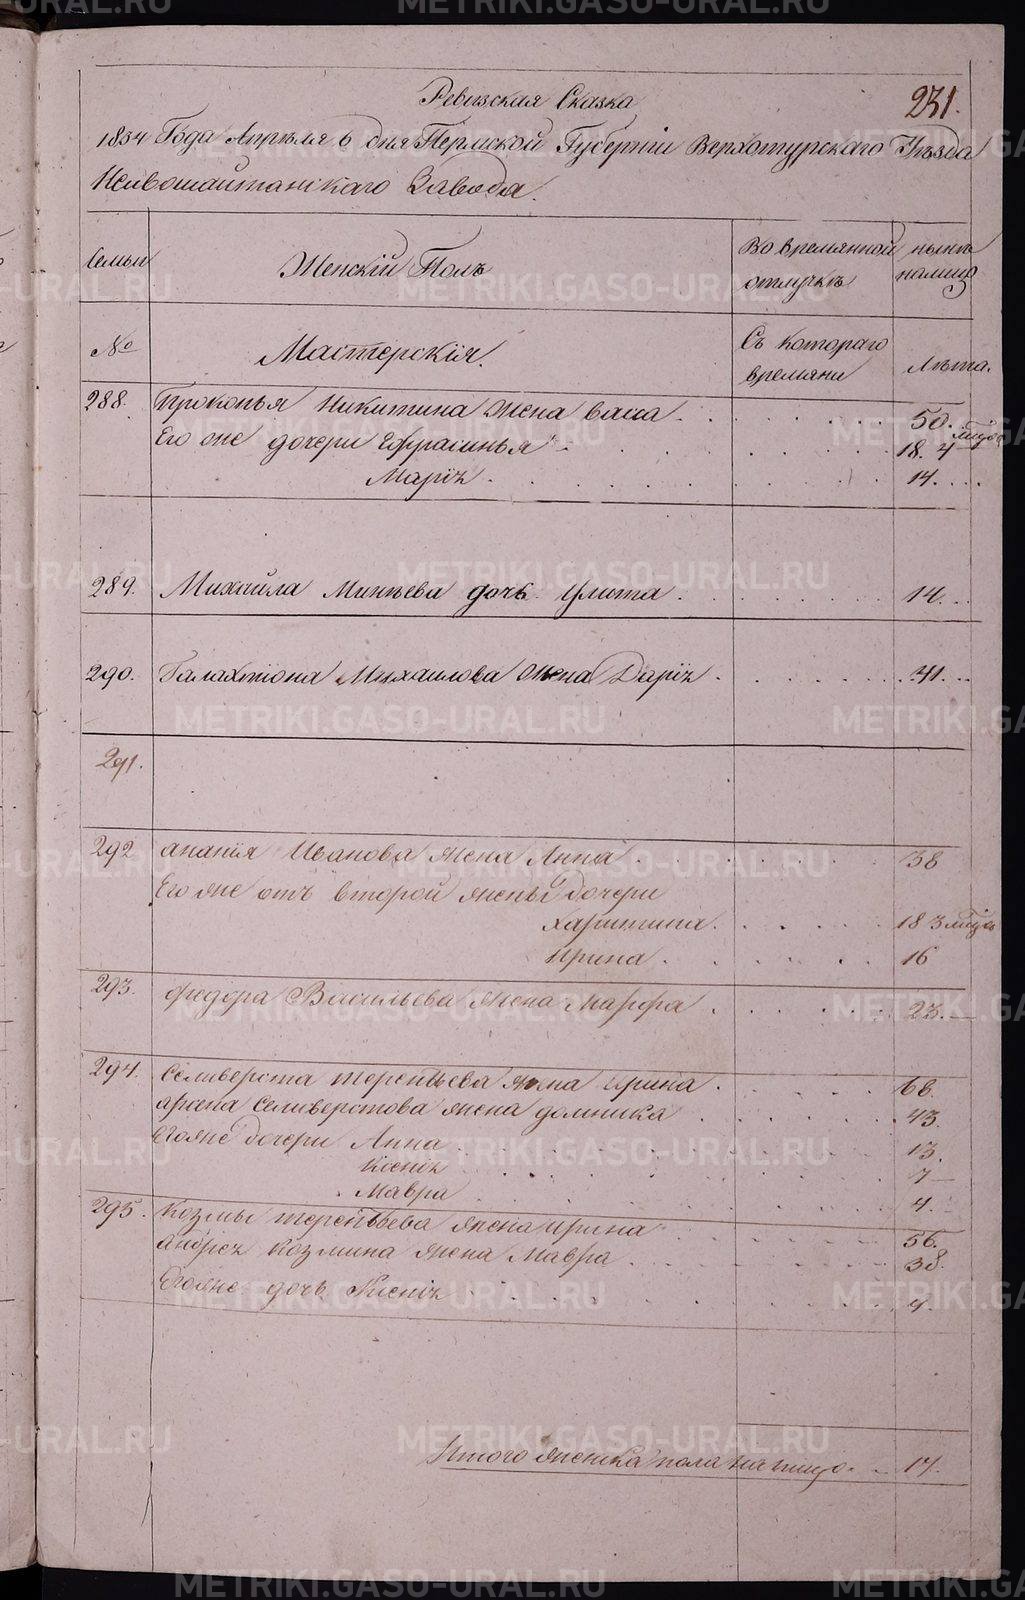 Ревизская Сказка
231.
1834 Года Апреля 6 дня Пермской Губернiи Верхотурского Уѣзда
Нейвошайтанскаго Завода.
Семьи
Женскiй Полъ
Во времянной отлучкѣ
нынѣ налицо
№
Мастерскiя.
Съ котораго времяни
Лѣта.
288. Прокопья Никитина жена Васса 50.
Его же дочери Ефросинья 18. 4
Марiя 14.
289. Михайла Минѣева дочь Улита 14.
290. Галахтiона Михаилова жена Дарiя 41.
291.
292 Ананiя Иванова жена Анна 38
Его же отъ второй жены дочери
Харитина 18 3
Ирина 16
293. Федора Васильева жена Марфа 23.
294. Селиверста терентьева жена ирина 68.
Селиверстова жена домника 43.
Егоже дочери Анна 13.
Ксенiя 7
Мавра 4.
295. Козмы терентьева жена ирина 56.
андрея козмина жена Мавра 38.
Егоже дочь Ксенiя 4.
Итого женска пола налицо 17.
METRIKI.GASO-URAL.RU